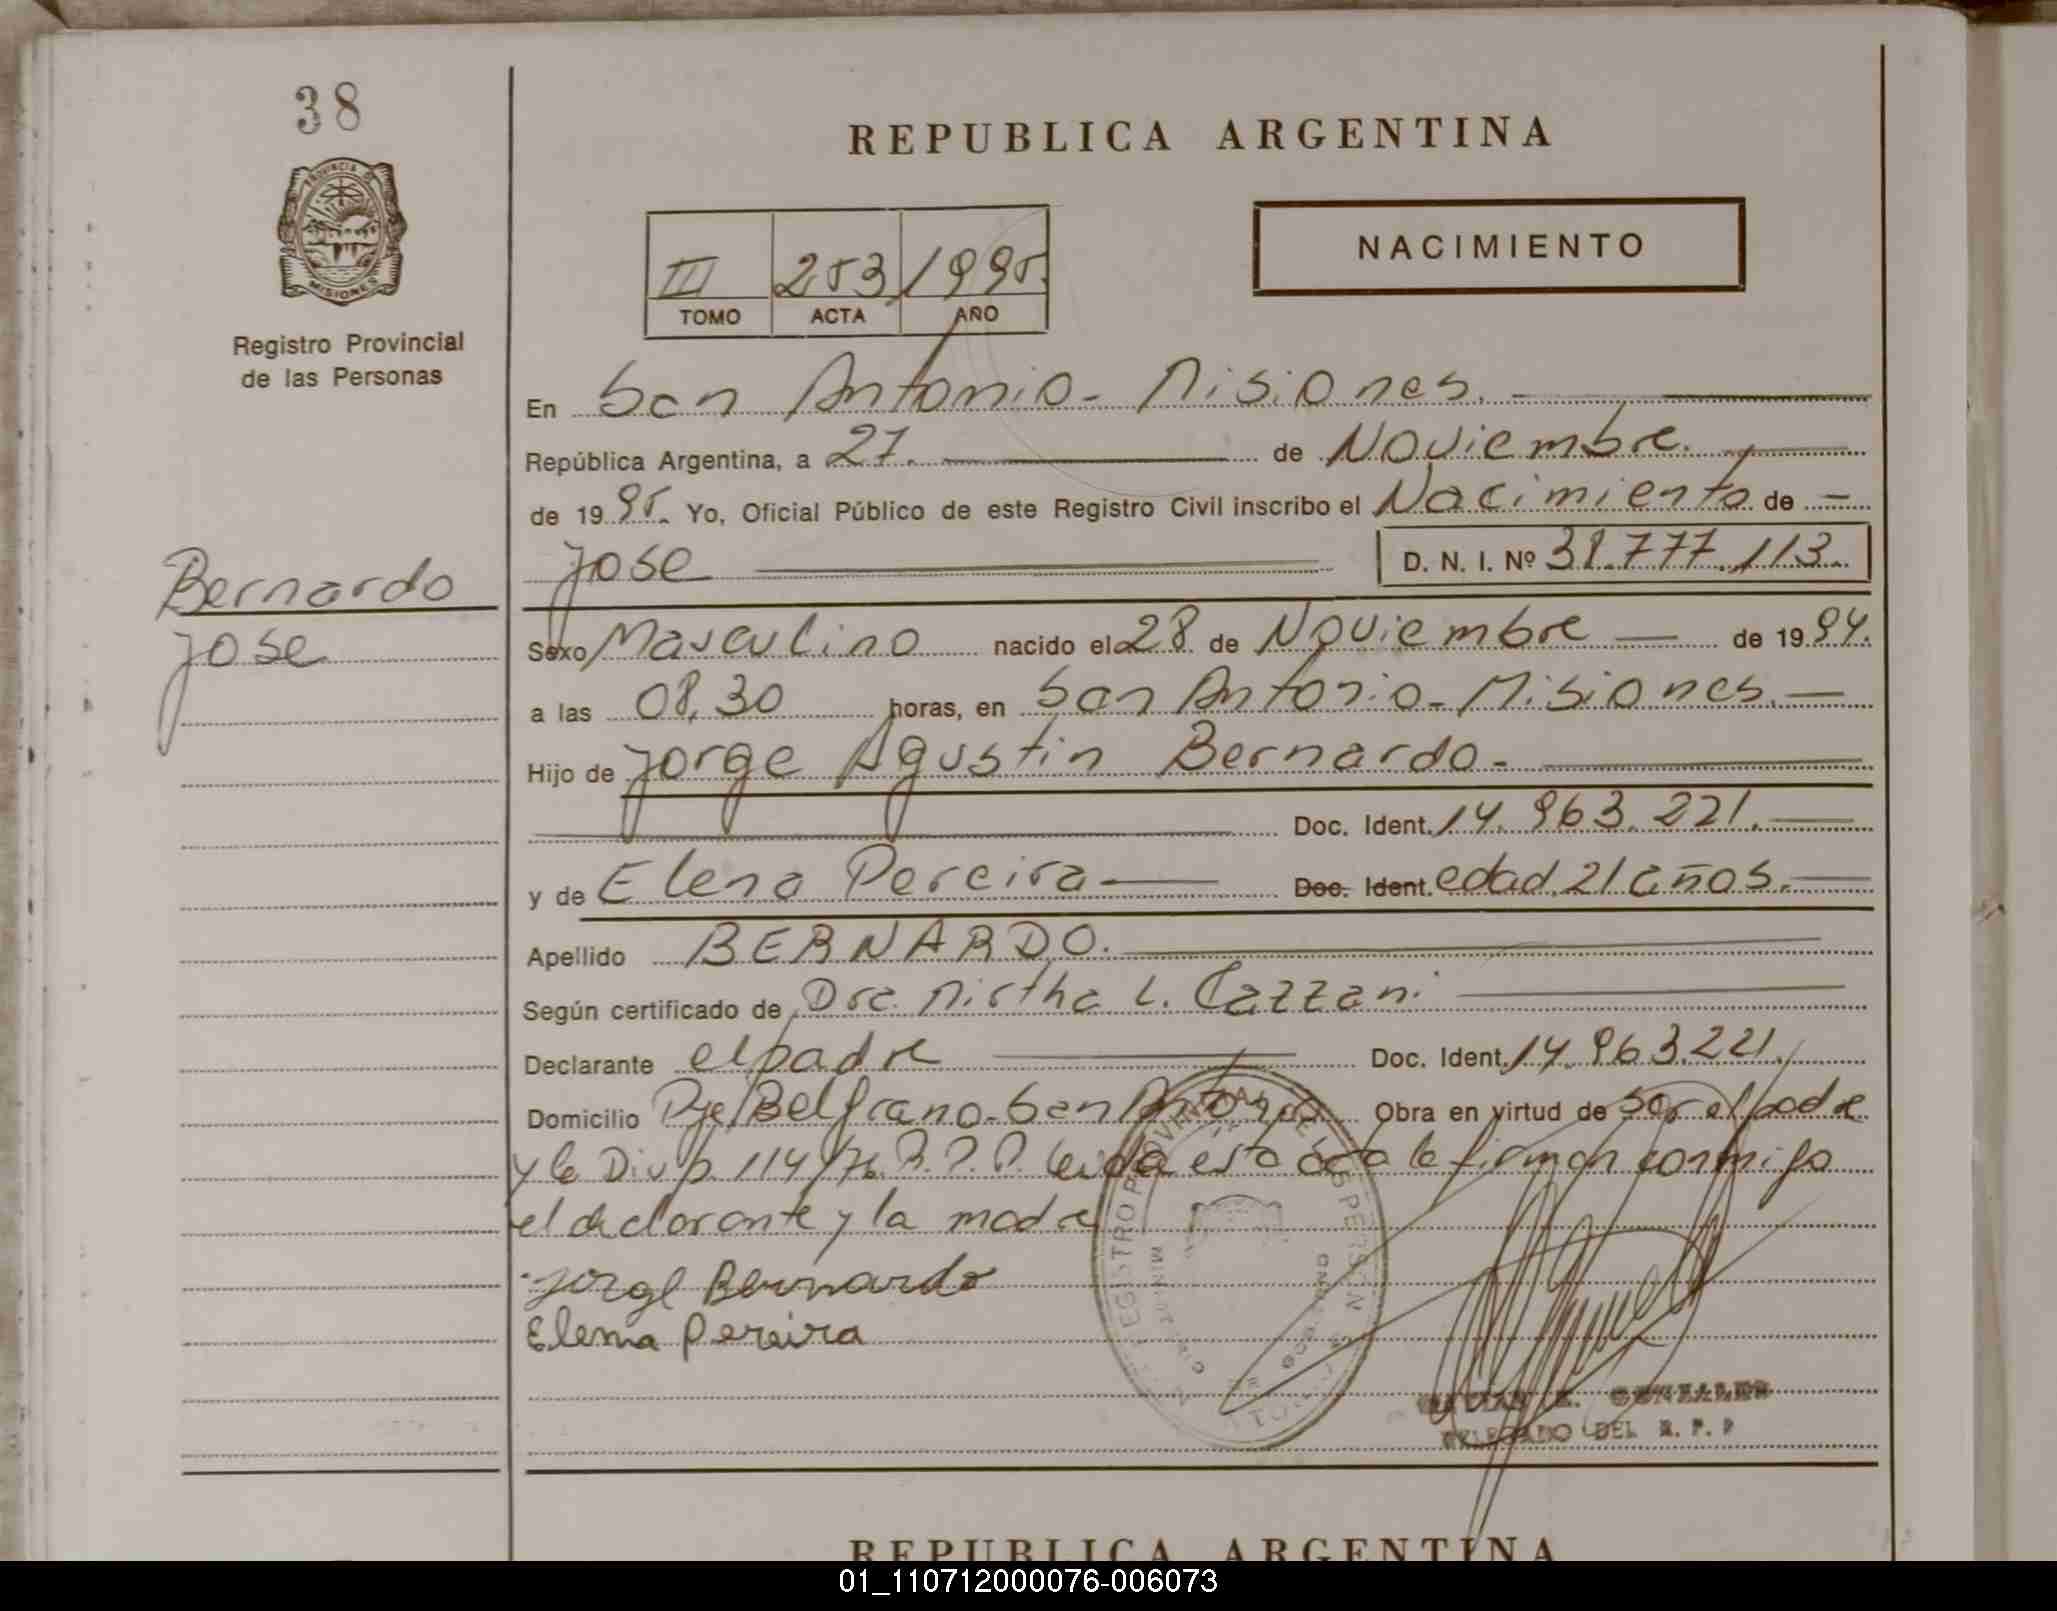 38
REPUBLICA ARGENTINA
PROVINCIA DE
MISIONES
NACIMIENTO
III 253 1995.
TOMO ACTA AÑO
Registro Provincial
de las Personas
En San Antonio - Misiones.
República Argentina, a 27. de Noviembre.
de 1995. Yo, Oficial Público de este Registro Civil inscribo el Nacimiento de
Jose D. N. I. Nº 38.777.113.
Bernardo
Jose
Sexo Masculino nacido el 28 de Noviembre de 1994.
a las 08,30 horas, en San Antonio - Misiones.
Hijo de Jorge Agustin Bernardo.-
Doc. Ident. 14.963.221.
y de Elena Pereira Doc. Ident. edad 21 años.
Apellido BERNARDO.
Según certificado de Dra. Mirtha L. Cazzani
Declarante el padre Doc. Ident. 14.963.221.
Domicilio Pje/Belgrano-San Antonio Obra en virtud de ser el padre
y la Disp. 114/76. R.P.P. leida esta acta la firman conmigo
el declarante y la madre
Jorge Bernardo
Elena Pereira
REGISTRO PROVINCIAL DE LAS PERSONAS
MINISTERIO DE GOBIERNO
GONZALEZ
DELEGADO DEL R. P. P
REPUBLICA ARGENTINA
01_110712000076-006073